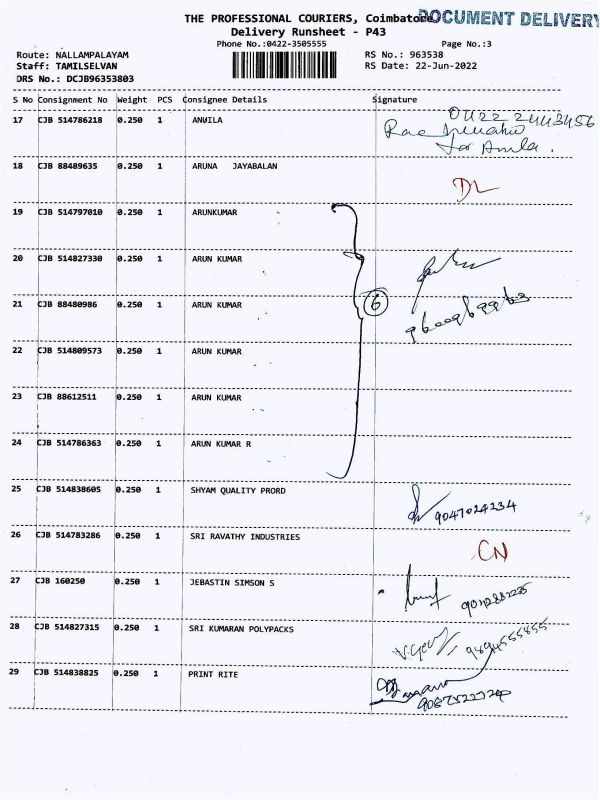 THE PROFESSIONAL COURIERS, Coimbatore
DOCUMENT DELIVERY
Delivery Runsheet - P43
Phone No.:0422-3505555 Page No.:3
Route: NALLAMPALAYAM RS No.: 963538
Staff: TAMILSELVAN RS Date: 22-Jun-2022
DRS No.: DCJB96353803
S No Consignment No Weight PCS Consignee Details Signature
17 CJB 514786218 0.250 1 ANWILA 0422 2443456
for Anila.
18 CJB 88489635 0.250 1 ARUNA JAYABALAN DL
19 CJB 514797010 0.250 1 ARUNKUMAR
20 CJB 514827330 0.250 1 ARUN KUMAR
21 CJB 88480986 0.250 1 ARUN KUMAR 6
22 CJB 514809573 0.250 1 ARUN KUMAR
23 CJB 88612511 0.250 1 ARUN KUMAR
24 CJB 514786363 0.250 1 ARUN KUMAR R
25 CJB 514838605 0.250 1 SHYAM QUALITY PRORD 9047024234
26 CJB 514783286 0.250 1 SRI RAVATHY INDUSTRIES CN
27 CJB 160250 0.250 1 JEBASTIN SIMSON S
28 CJB 514827315 0.250 1 SRI KUMARAN POLYPACKS 9494555855
29 CJB 514838825 0.250 1 PRINT RITE